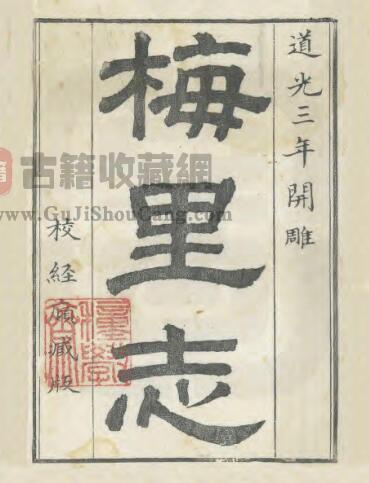 道光三年開雕
梅里志
校經廎藏版
古籍收藏網
www.GuJiShouCang.com